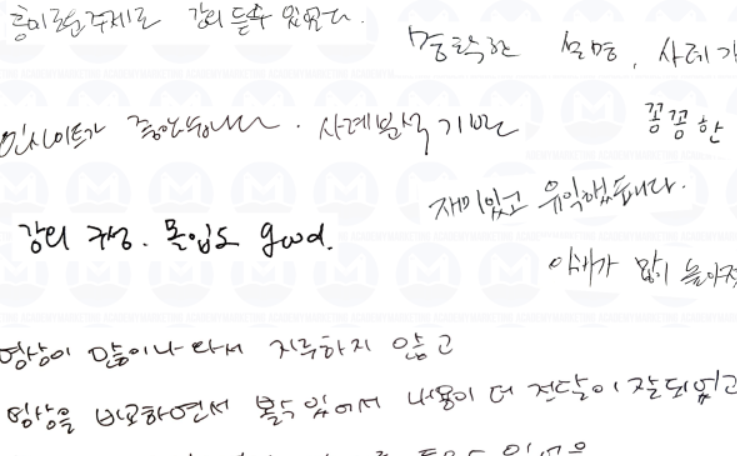 흥미로운 주제로 강의 들을 수 있었다.
명확한 설명, 사례가
인사이트가 좋았습니다. 사례분석 기반
꼼꼼한
재미있고 유익했습니다.
강의 구성. 몰입도 good.
이해가 많이 높아져
영상이 많이 나와서 지루하지 않고
영상을 비교하면서 볼 수 있어서 내용이 더 전달이 잘되었고